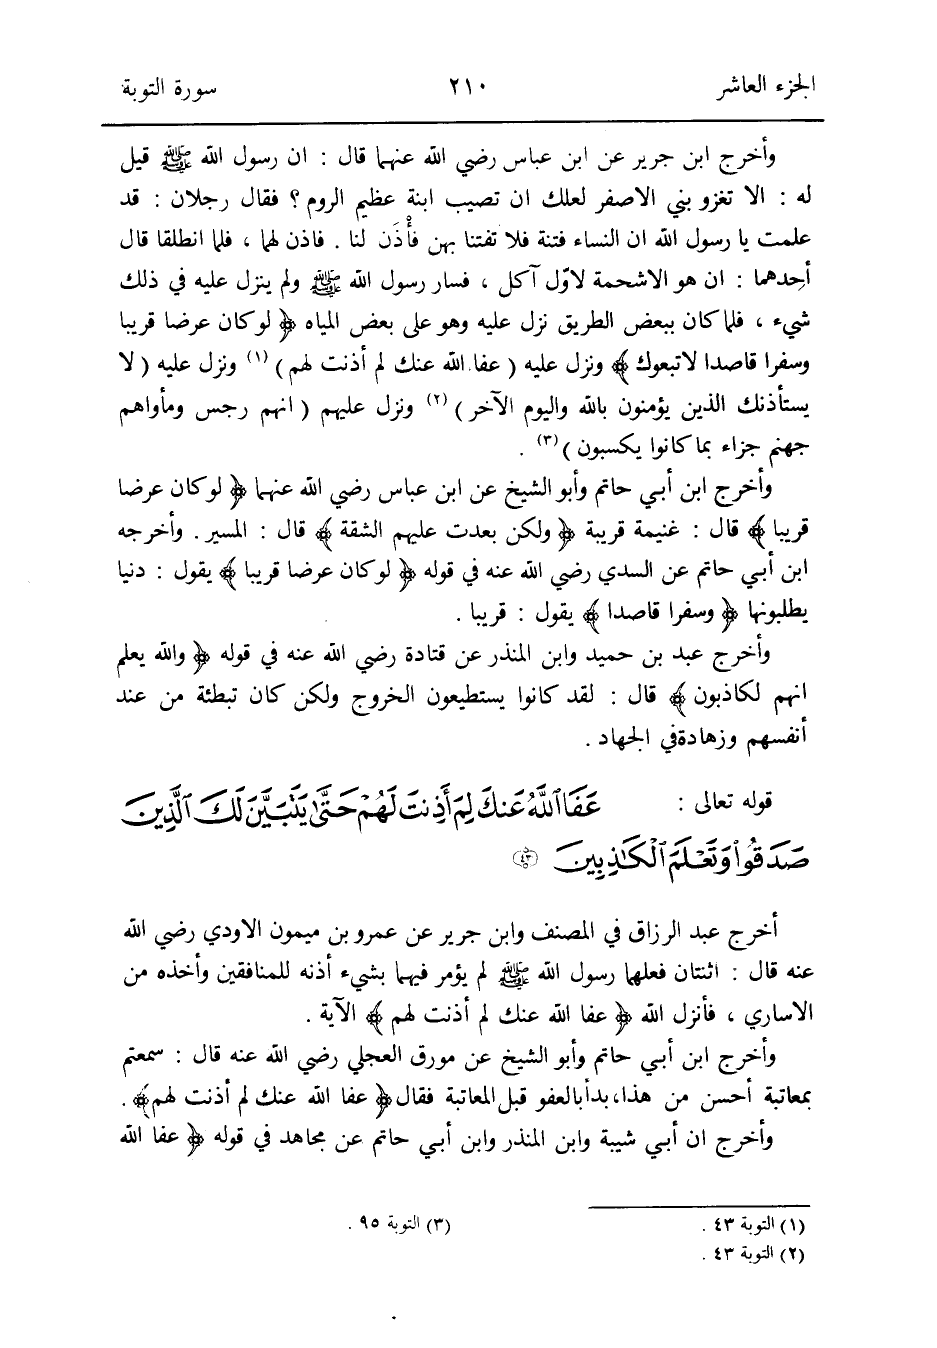 الجزء العاشر ٢١٠ سورة التوبة
وأخرج ابن جرير عن ابن عباس رضي الله عنهما قال : ان رسول الله ﷺ قيل
له : الا تغزو بني الاصفر لعلك ان تصيب ابنة عظيم الروم ؟ فقال رجلان : قد
علمت يا رسول الله ان النساء فتنة فلا تفتنا بهن فأْذَن لنا . فاذن لهما ، فلما انطلقا قال
أحدهما : ان هو الاشحمة لاوّل آكل ، فسار رسول الله ﷺ ولم ينزل عليه في ذلك
شيء ، فلما كان ببعض الطريق نزل عليه وهو على بعض المياه ﴿ لو كان عرضا قريبا
وسفرا قاصدا لاتبعوك ﴾ ونزل عليه ( عفا الله عنك لم أذنت لهم ) (١) ونزل عليه ( لا
يستأذنك الذين يؤمنون بالله واليوم الآخر ) (٢) ونزل عليهم ( انهم رجس ومأواهم
جهنم جزاء بما كانوا يكسبون ) (٣) .
وأخرج ابن أبي حاتم وأبو الشيخ عن ابن عباس رضي الله عنهما ﴿ لو كان عرضا
قريبا ﴾ قال : غنيمة قريبة ﴿ ولكن بعدت عليهم الشقة ﴾ قال : المسير . وأخرجه
ابن أبي حاتم عن السدي رضي الله عنه في قوله ﴿ لو كان عرضا قريبا ﴾ يقول : دنيا
يطلبونها ﴿ وسفرا قاصدا ﴾ يقول : قريبا .
وأخرج عبد بن حميد وابن المنذر عن قتادة رضي الله عنه في قوله ﴿ والله يعلم
انهم لكاذبون ﴾ قال : لقد كانوا يستطيعون الخروج ولكن كان تبطئة من عند
أنفسهم وزهادة في الجهاد .
قوله تعالى : عَفَا ٱللَّهُ عَنكَ لِمَ أَذِنتَ لَهُمْ حَتَّىٰ يَتَبَيَّنَ لَكَ ٱلَّذِينَ
صَدَقُوا۟ وَتَعْلَمَ ٱلْكَـٰذِبِينَ ﴿٤٣﴾
أخرج عبد الرزاق في المصنف وابن جرير عن عمرو بن ميمون الاودي رضي الله
عنه قال : اثنتان فعلها رسول الله ﷺ لم يؤمر فيهما بشيء أذنه للمنافقين وأخذه من
الاساري ، فأنزل الله ﴿ عفا الله عنك لم أذنت لهم ﴾ الآية .
وأخرج ابن أبي حاتم وأبو الشيخ عن مورق العجلي رضي الله عنه قال : سمعتم
بمعاتبة أحسن من هذا، بدأ بالعفو قبل المعاتبة فقال ﴿ عفا الله عنك لم أذنت لهم ﴾ .
وأخرج ان أبي شيبة وابن المنذر وابن أبي حاتم عن مجاهد في قوله ﴿ عفا الله
(١) التوبة ٤٣ . (٣) التوبة ٩٥ .
(٢) التوبة ٤٣ .